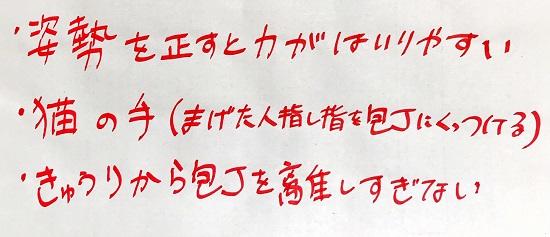 ・姿勢を正すと力がはいりやすい
・猫の手(まげた人指し指を包丁にくっつける)
・きゅうりから包丁を離しすぎない